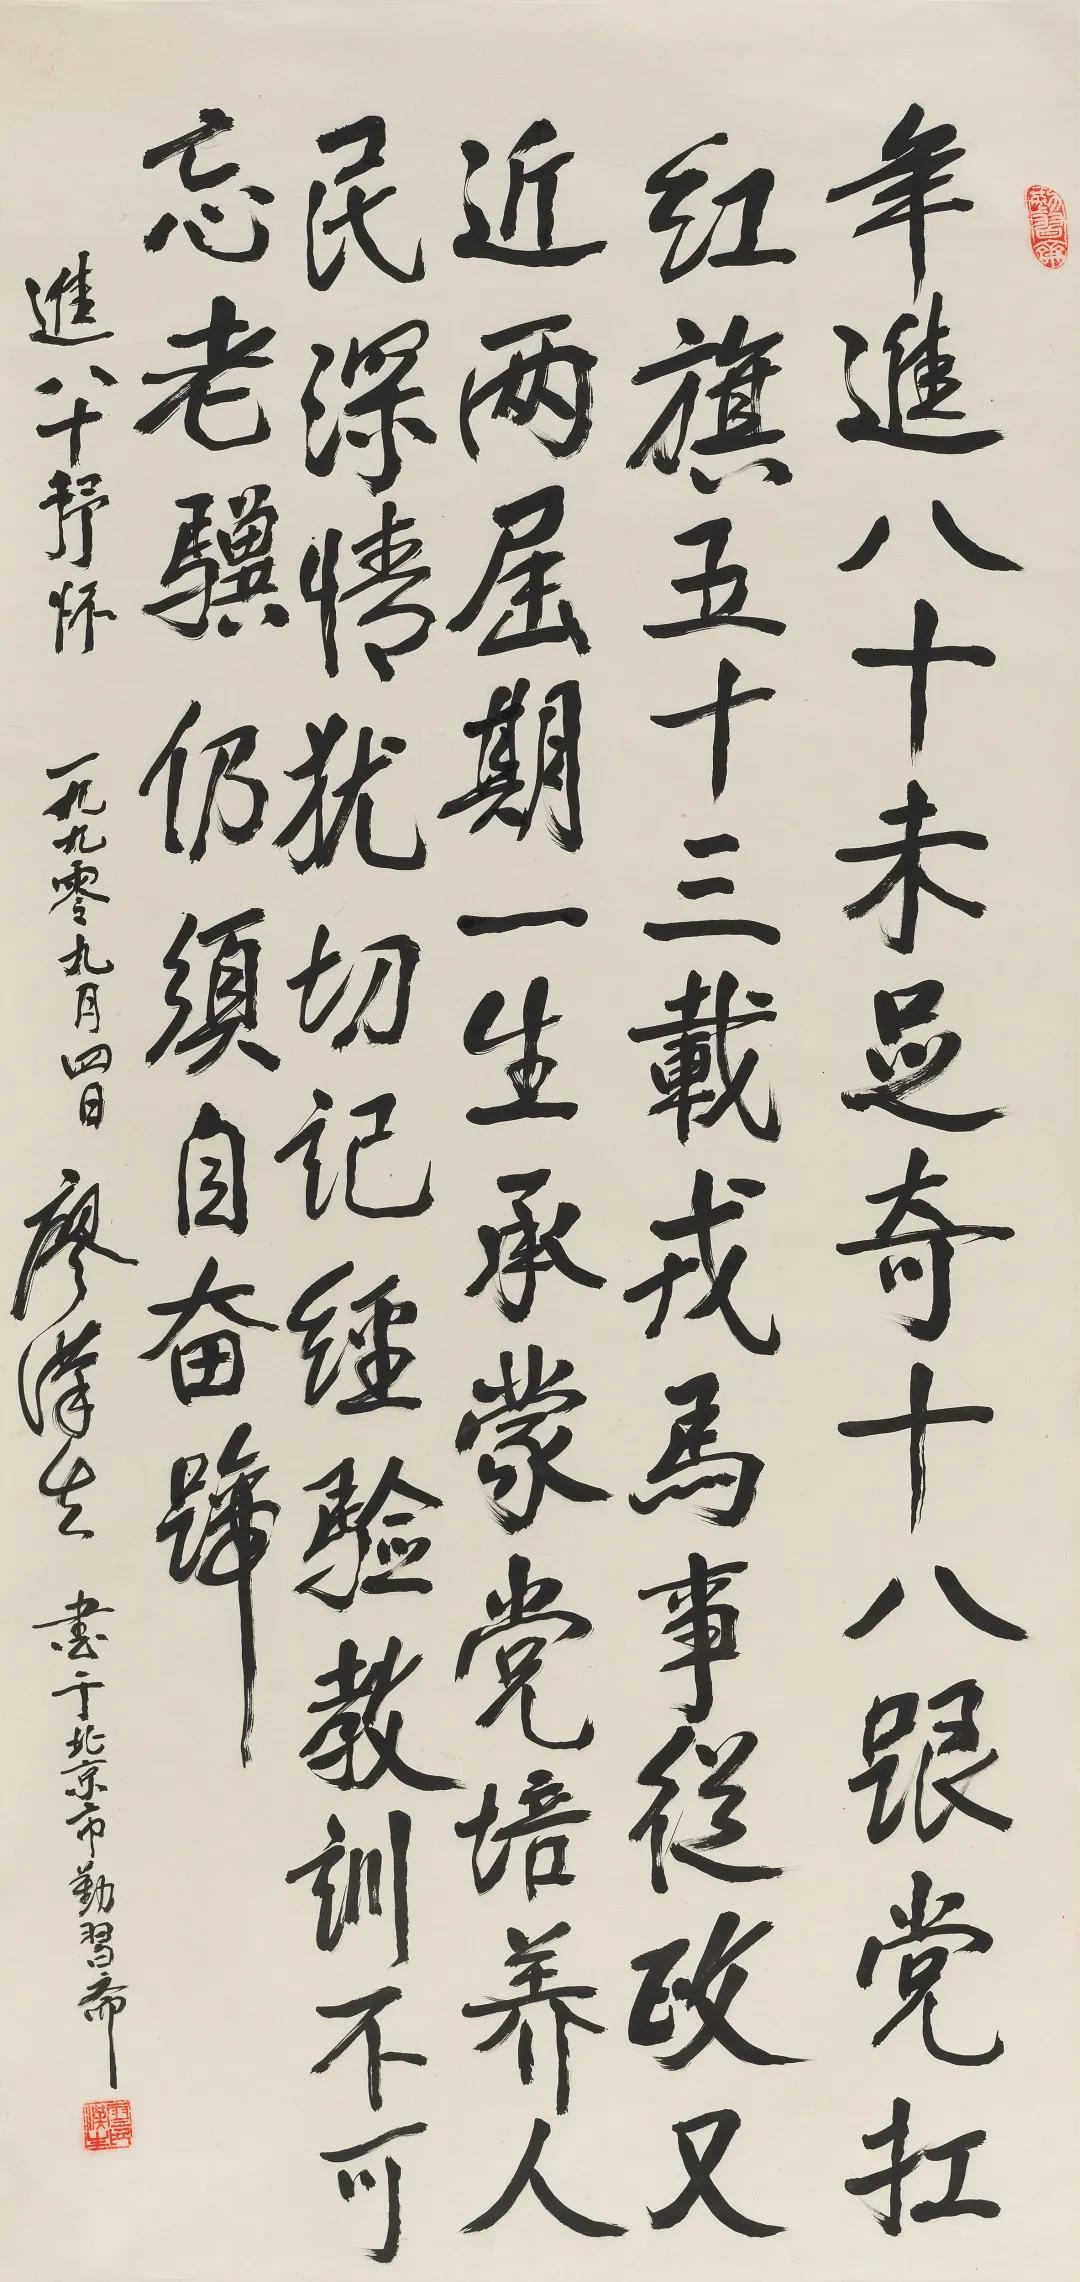 年進八十未足奇十八跟党扛
红旗五十三載戎馬事從政又
近两届期一生承蒙党培养人
民深情犹切記經驗教訓不可
忘老驥仍須自奋蹄
進八十抒怀 一九九零九月四日 廖漢生 書于北京市勤習斋
勤習斋
廖漢生